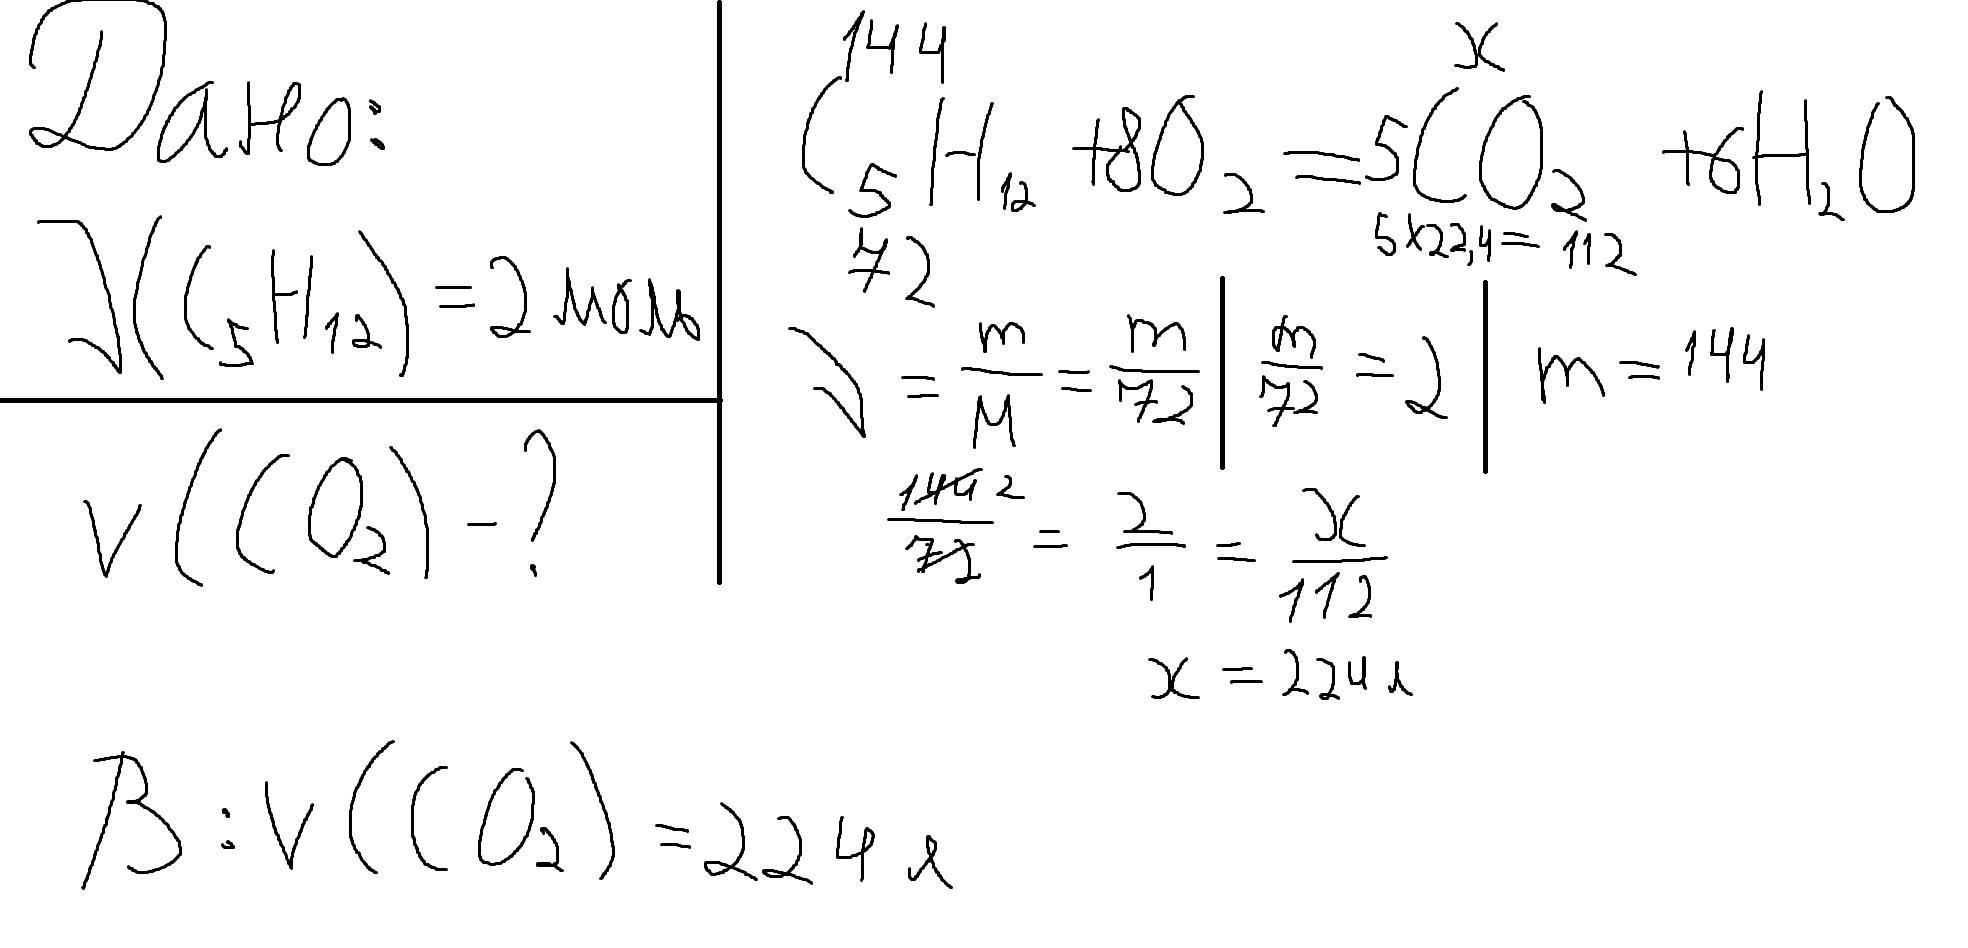 Дано:
ν(C₅H₁₂) = 2 моль
v(CO₂) - ?
144 x
C₅H₁₂ + 8O₂ = 5CO₂ + 6H₂O
72 5x22,4 = 112
ν = m/M = m/72 | m/72 = 2 | m = 144
144/72 2 = 2/1 = x/112
x = 224 л
В: v(CO₂) = 224 л